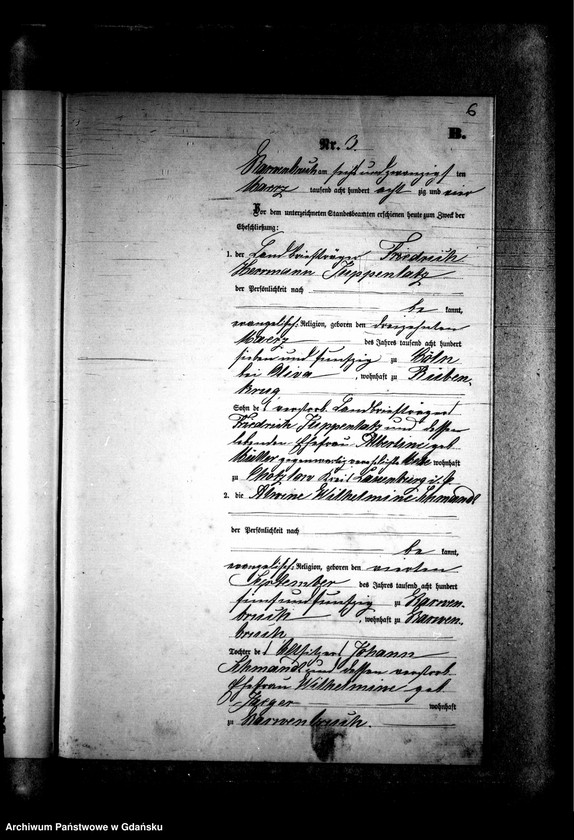 6
B.
Nr. 3.
Barwenbruch am sechs und zwanzigsten
Maerz tausend acht hundert acht zig und vier
Vor dem unterzeichneten Standesbeamten erschienen heute zum Zweck der
Eheschließung:
1. der Landbriefträger Friedrich
Herrmann
der Persönlichkeit nach
be kannt,
evangelischer Religion, geboren den dreizehnten
Maerz des Jahres tausend acht hundert
sieben und fünfzig zu Kölln
bei Oliva, wohnhaft zu Rieben-
krug
Sohn des verstorb. Landbriefträgers
Friedrich und dessen
lebenden Ehefrau Albertine geb.
Müller gegenwärtig verehelichte wohnhaft
zu Chotzlow Kreis Lauenburg i. P.
2. die Alwine Wilhelmine Schmandt
der Persönlichkeit nach
be kannt,
evangelischer Religion, geboren den vierten
September des Jahres tausend acht hundert
fünf und fünfzig zu Barwen-
bruch, wohnhaft zu Barwen-
bruch
Tochter des Altsitzers Johann
Schmandt und dessen verstorb.
Ehefrau Wilhelmine geb.
Jaeger wohnhaft
zu Barwenbruch.
Archiwum Państwowe w Gdańsku